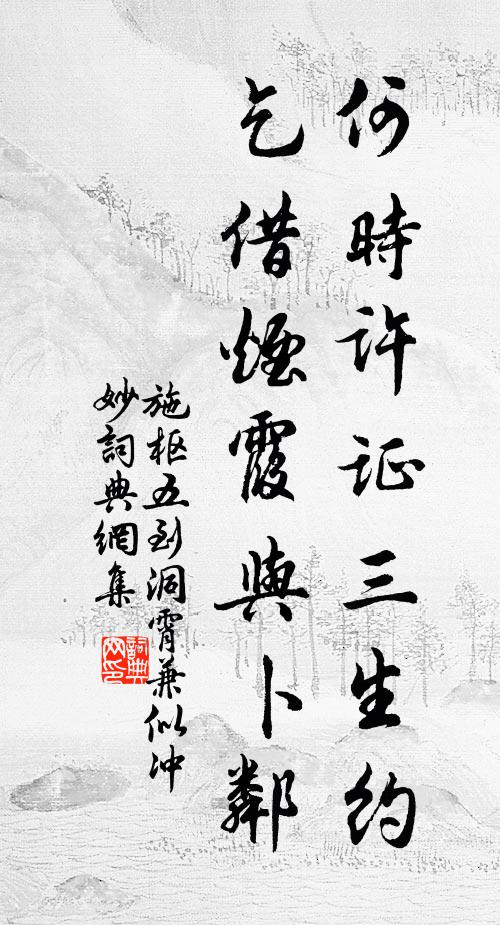 何時許证三生約
乞借煙霞與卜鄰
施枢五到洞霄兼似冲
妙詞典網集
詞典